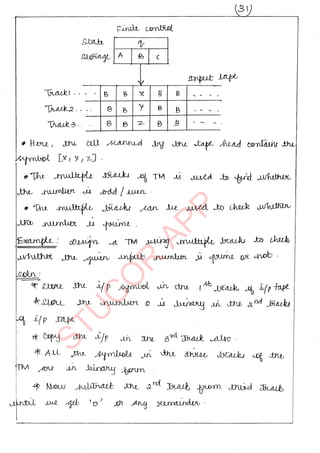 (31)
Finite control
State q
Storage A B C
input tape
Track1 - - - B B X B B - - - -
Track2 - - - B B Y B B - - - -
Track3 - - B B Z B B - - - -
• Here, the cell scanned by the tape head contains the
symbol [X, Y, Z].
• The multiple tracks of TM is used to find whether
the number is odd / even.
• The multiple tracks can be used to check whether
the number is prime.
Example: design a TM using multiple tracks to check
whether the given input number is prime or not.
Soln:
* Store the i/p symbol in the 1st track of i/p tape
* Store the number 2 is binary in the 2nd track
of i/p tape
* Copy the i/p in the 3rd Track also.
* All the symbols in the three tracks of the
TM are in binary form.
* Now subtract the 2nd Track from third track
until we get '0' or any remainder.
STUCOR APP